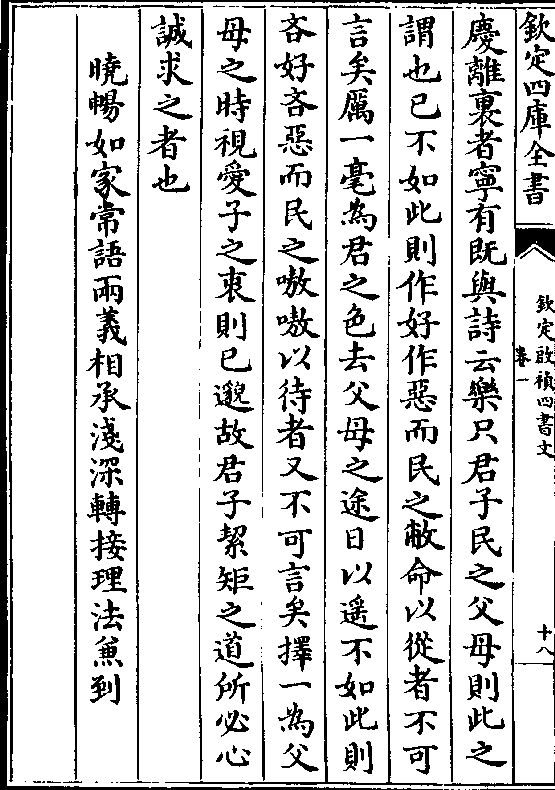 欽定四庫全書
欽定啟禎四書文
卷一
十八
慶離裏者寧有既與詩云樂只君子民之父母則此之
謂也已不如此則作好作惡而民之敝命以從者不可
言矣厲一毫為君之色去父母之途日以遥不如此則
吝好吝惡而民之嗷嗷以待者又不可言矣擇一為父
母之時視愛子之衷則已邈故君子絜矩之道所必心
誠求之者也
曉暢如家常語兩義相承淺深轉接理法兼到